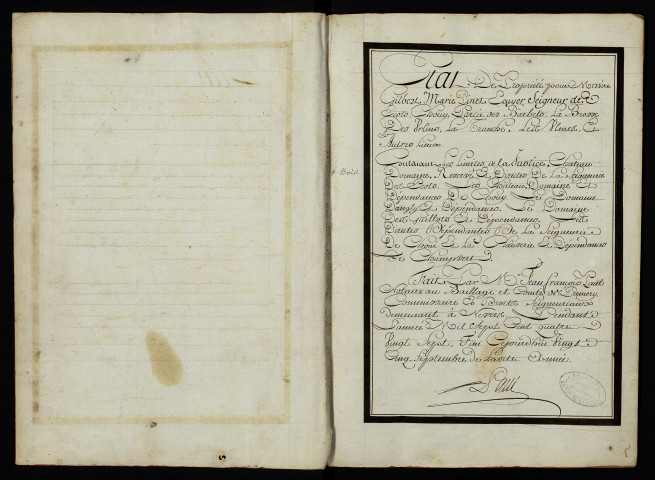 Etat
De Propriété pour Messire
Gilbert Marie Pinet Ecuyer Seigneur des
Ecots, Chouy, Partie des Barbets, La Brosse
Des Ulmes, La Tranche, Les Places, Et
Autres Lieux
+ Bois
Contenant Les Limites de la Justice, Château
Domaine, Reserve Et Directes De La Seigneurie
Des Ecots. Les Château, Domaine Et
Dépendances De Chouy. Le Domaine
Et Dépendances. Le Domaine
Des Guillots Et Dépendances. Les
Directes Dépendantes De La Seigneurie
De Choué et de La Et Dependances
De Champvert
Fait Par Me Jean François
Notaire au Bailliage et Comté de
Commissaire Es Droits Seigneuriaux
demeurant à Nevers, Pendant
L'année Mil Sept Cent Quatre
Vingt Sept, Fini Cejourdhui Vingt
Cinq Septembre de Ladite Année